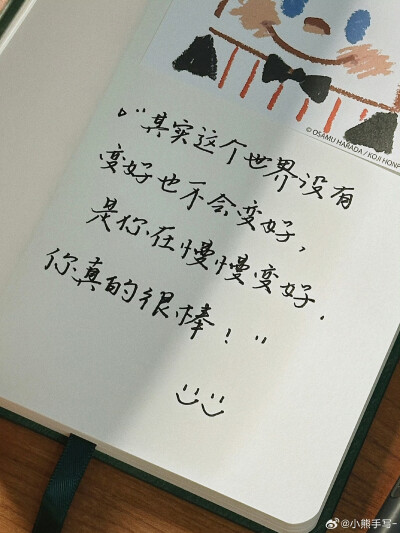 © OSAMU HARADA / KOJI HONP
。"其实这个世界没有
变好也不会变好,
是你在慢慢变好.
你真的很棒!"
@小熊手写-